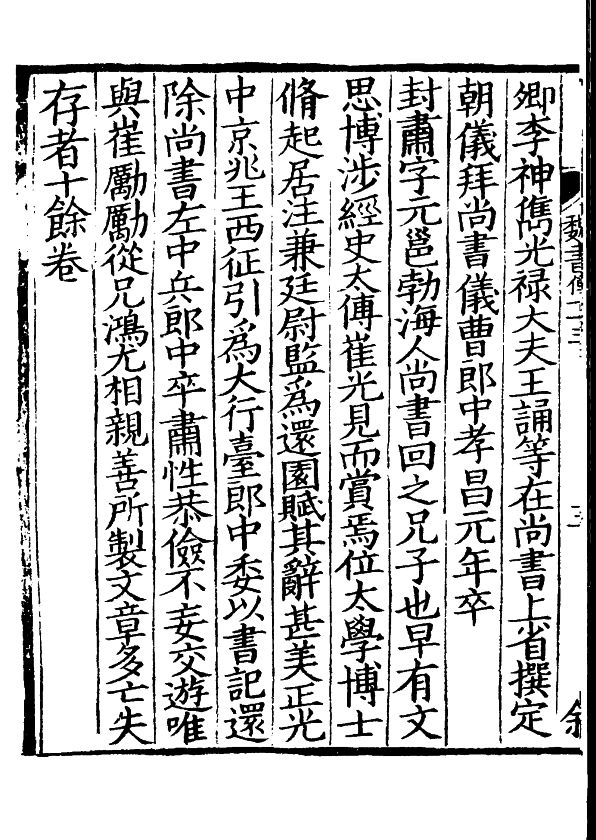 卿李神儁光禄大夫王誦等在尚書上省撰定
朝儀拜尚書儀曹郎中孝昌元年卒
封肅字元邕勃海人尚書回之兄子也早有文
思博涉經史太傅崔光見而賞焉位太學博士
脩起居注兼廷尉監為還園賦其辭甚美正光
中京兆王西征引為大行臺郎中委以書記還
除尚書左中兵郎中卒肅性恭儉不妄交遊唯
與崔勵勵從兄鴻尤相親善所製文章多亡失
存者十餘卷